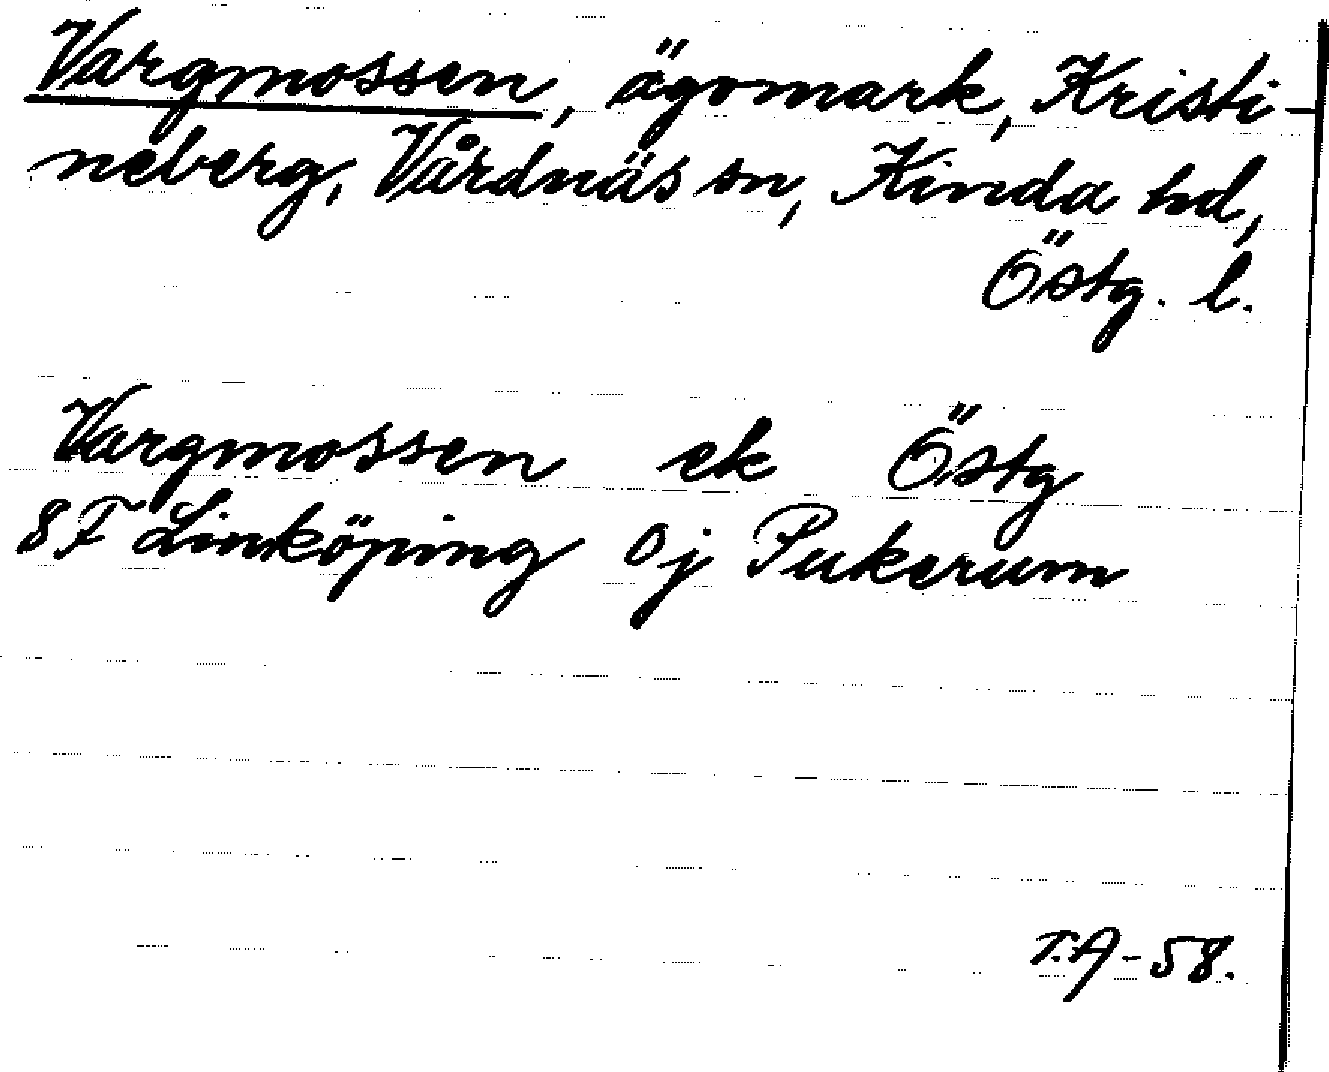 Vargmossen, ägomark, Kristi-
neberg, Vårdnäs sn, Kinda hd,
Östg. l.
Vargmossen ek Östg
8F Linköping Oj Pukerum
T.A-58.